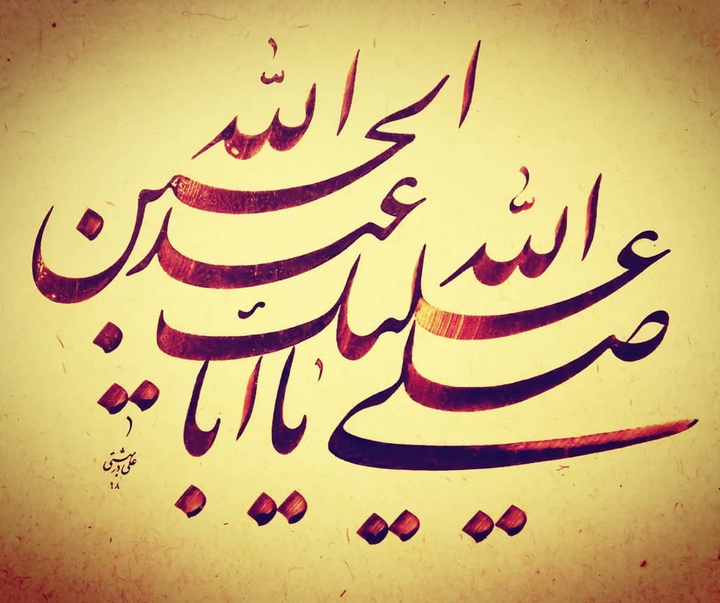 صلی الله علیک یا ابا عبد الله الحسین
علی در بهشتی
۹۸